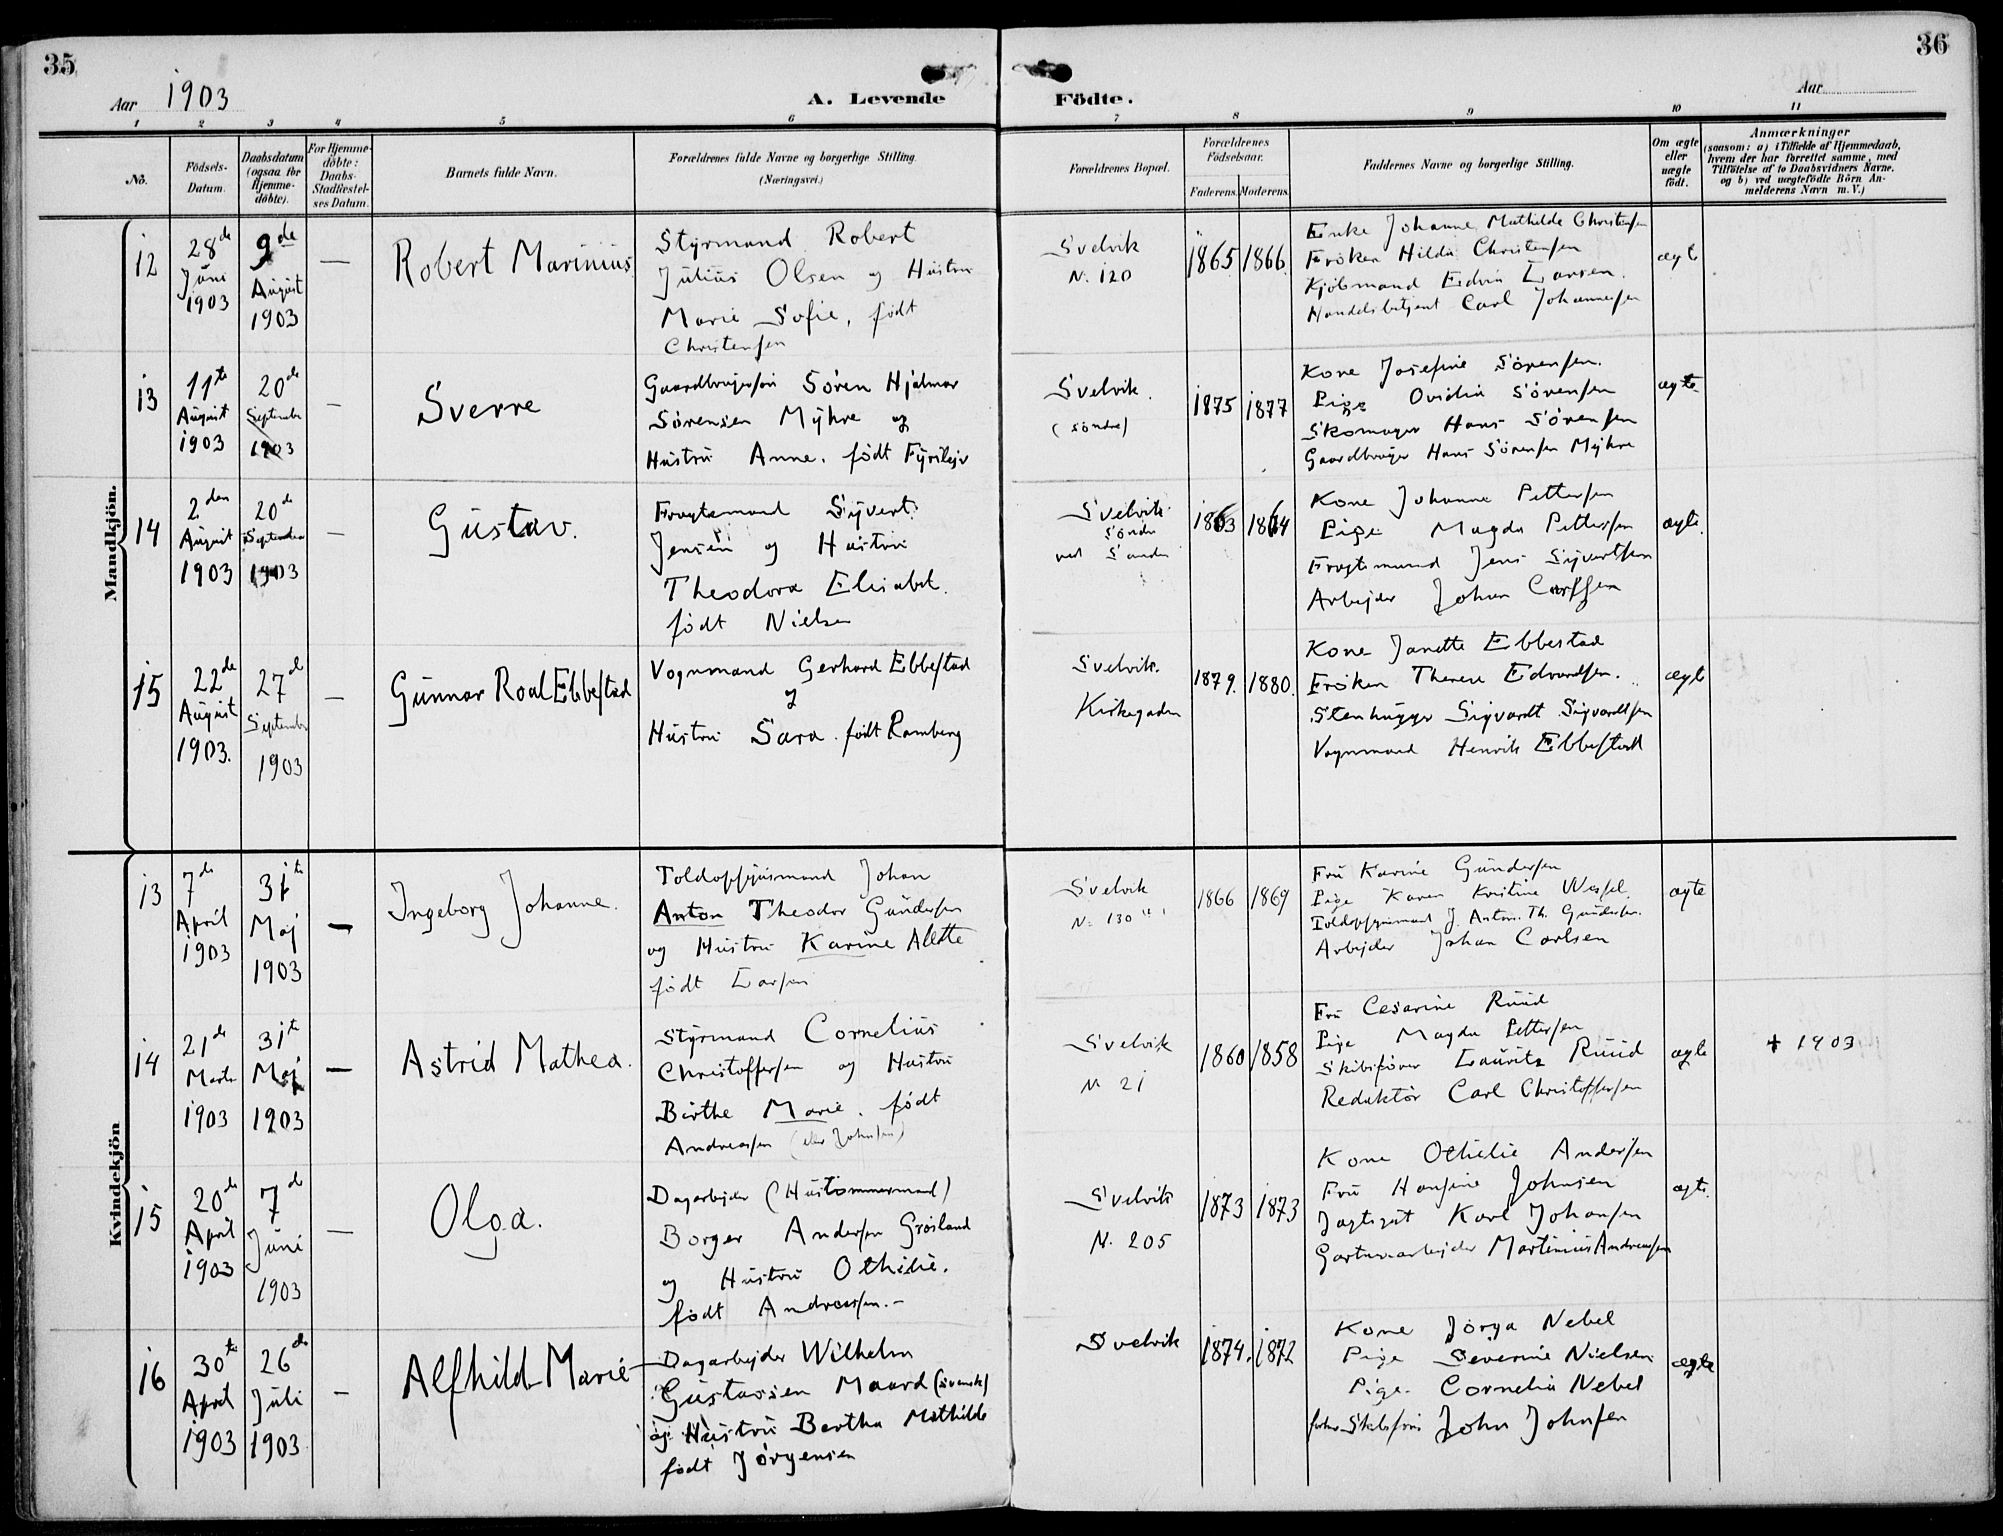 35
36
Aar 1903
A. Levende
Födte.
Aar
1 2 3 4 5 6 7 8 9 10 11
No.
Födsels-Datum.
Daabsdatum (ogsaa for Hjemme-döbte).
For Hjemme-döbte: Daabs-Stadfæstel-ses Datum.
Barnets fulde Navn.
Forældrenes fulde Navne og borgerlige Stilling.
(Næringsvei.)
Forældrenes Bopæl.
Forældrenes Födselsaar.
Faderens. Moderens.
Faddernes Navne og borgerlige Stilling.
Om ægte eller uægte födt.
Anmærkninger
(saasom: a) i Tilfælde af Hjemmedaab, hvem der har forrettet samme, med Tilföielse af to Daabsvidners Navne, og b) ved uægtefödte Börn An-melderens Navn m. V.)
Mandkjön.
12
28de Juni 1903
9de August 1903
—
Robert Marinius
Styrmand Robert
Julius Olsen og Hustru
Marie Sofie, født
Christensen
Svelvik
N. 120
1865
1866
Enke Johanne Mathilde Christensen
Frøken Hilda Christensen
Kjøbmand Edvin Larsen
Handelsbetjent Carl Johannesen
ægte
13
11te August 1903
20de September 1903
—
Sverre
Gaardbrugersøn Søren Hjalmar
Sørensen Myhre og
Hustru Anne, født
Svelvik
(søndre)
1875
1877
Kone Josefine Sørensen.
Pige Ovidia Sørensen
Skomager Hans Sørensen
Gaardbruger Hans Sørensen Myhre
ægte
14
2den August 1903
20de September 1903
—
Gustav.
Fragtemand Syvert
Jensen og Hustru
Theodora Elisabet
født Nielsen
Svelvik
Søndre
ved Sanden
1863
1864
Kone Johanne Pettersen
Pige Magda Pettersen
Fragtemand Jens Syvertsen
Arbejder Johan
ægte.
15
22de August 1903.
27de September 1903
—
Gunnar Roal Ebbestad
Vognmand Gerhard Ebbestad
og
Hustru Sara født Ramberg
Svelvik.
Kirkegaden
1879.
1880.
Kone Janette Ebbestad
Frøken Therese Edvardsen.
Stenhugger Sigvardt Sigvardtsen
Vognmand Henrik Ebbestad
ægte
Kvindekjön
13
7de April 1903
31te Maj 1903
—
Ingeborg Johanne.
Toldopsynsmand Johan
Anton Theodor Gundersen
og Hustru Karine Alette
født Larsen
Svelvik
N. 130
1866
1869
Fru Karine Gundersen
Pige Karen Kristine Wessel
Toldopsynsmand J. Anton. Th. Gundersen.
Arbejder Johan Carlsen
ægte
14
21de Marts 1903
31te Maj 1903
—
Astrid Mathea.
Styrmand Cornelius
Christoffersen og Hustru
Birthe Marie, født
Andreassen (eller Johnsen)
Svelvik
N 21
1860
1858
Fru Cesarine Ruud
Pige Magda Pettersen
Skibsfører Lauritz Ruud
Redaktør Carl Christoffersen
ægte
+ 1903
15
20de April 1903
7de Juni 1903
—
Olga.
Dagarbejder (Hustømmermand)
Borger Andersen Grøsland
og Hustru Othilie.
født Andreassen.—
Svelvik
N. 205
1873
1873
Kone Othilie Andersen
Fru Hansine Johnsen
Jagtsgut Karl Johansen
Gartnerarbejder Martinius Andreassen
ægte.
16
30te April 1903
26de Juli 1903
—
Alfhild Marie
Dagarbejder Wilhelm
Gustavsen Maard (svensk)
og Hustru Bertha Mathilde
født Jørgensen
Svelvik
1874.
1872
Kone Jørga Nebel
Pige Severine Nielsen
Pige. Cornelia Nebel
John Johnsen
ægte